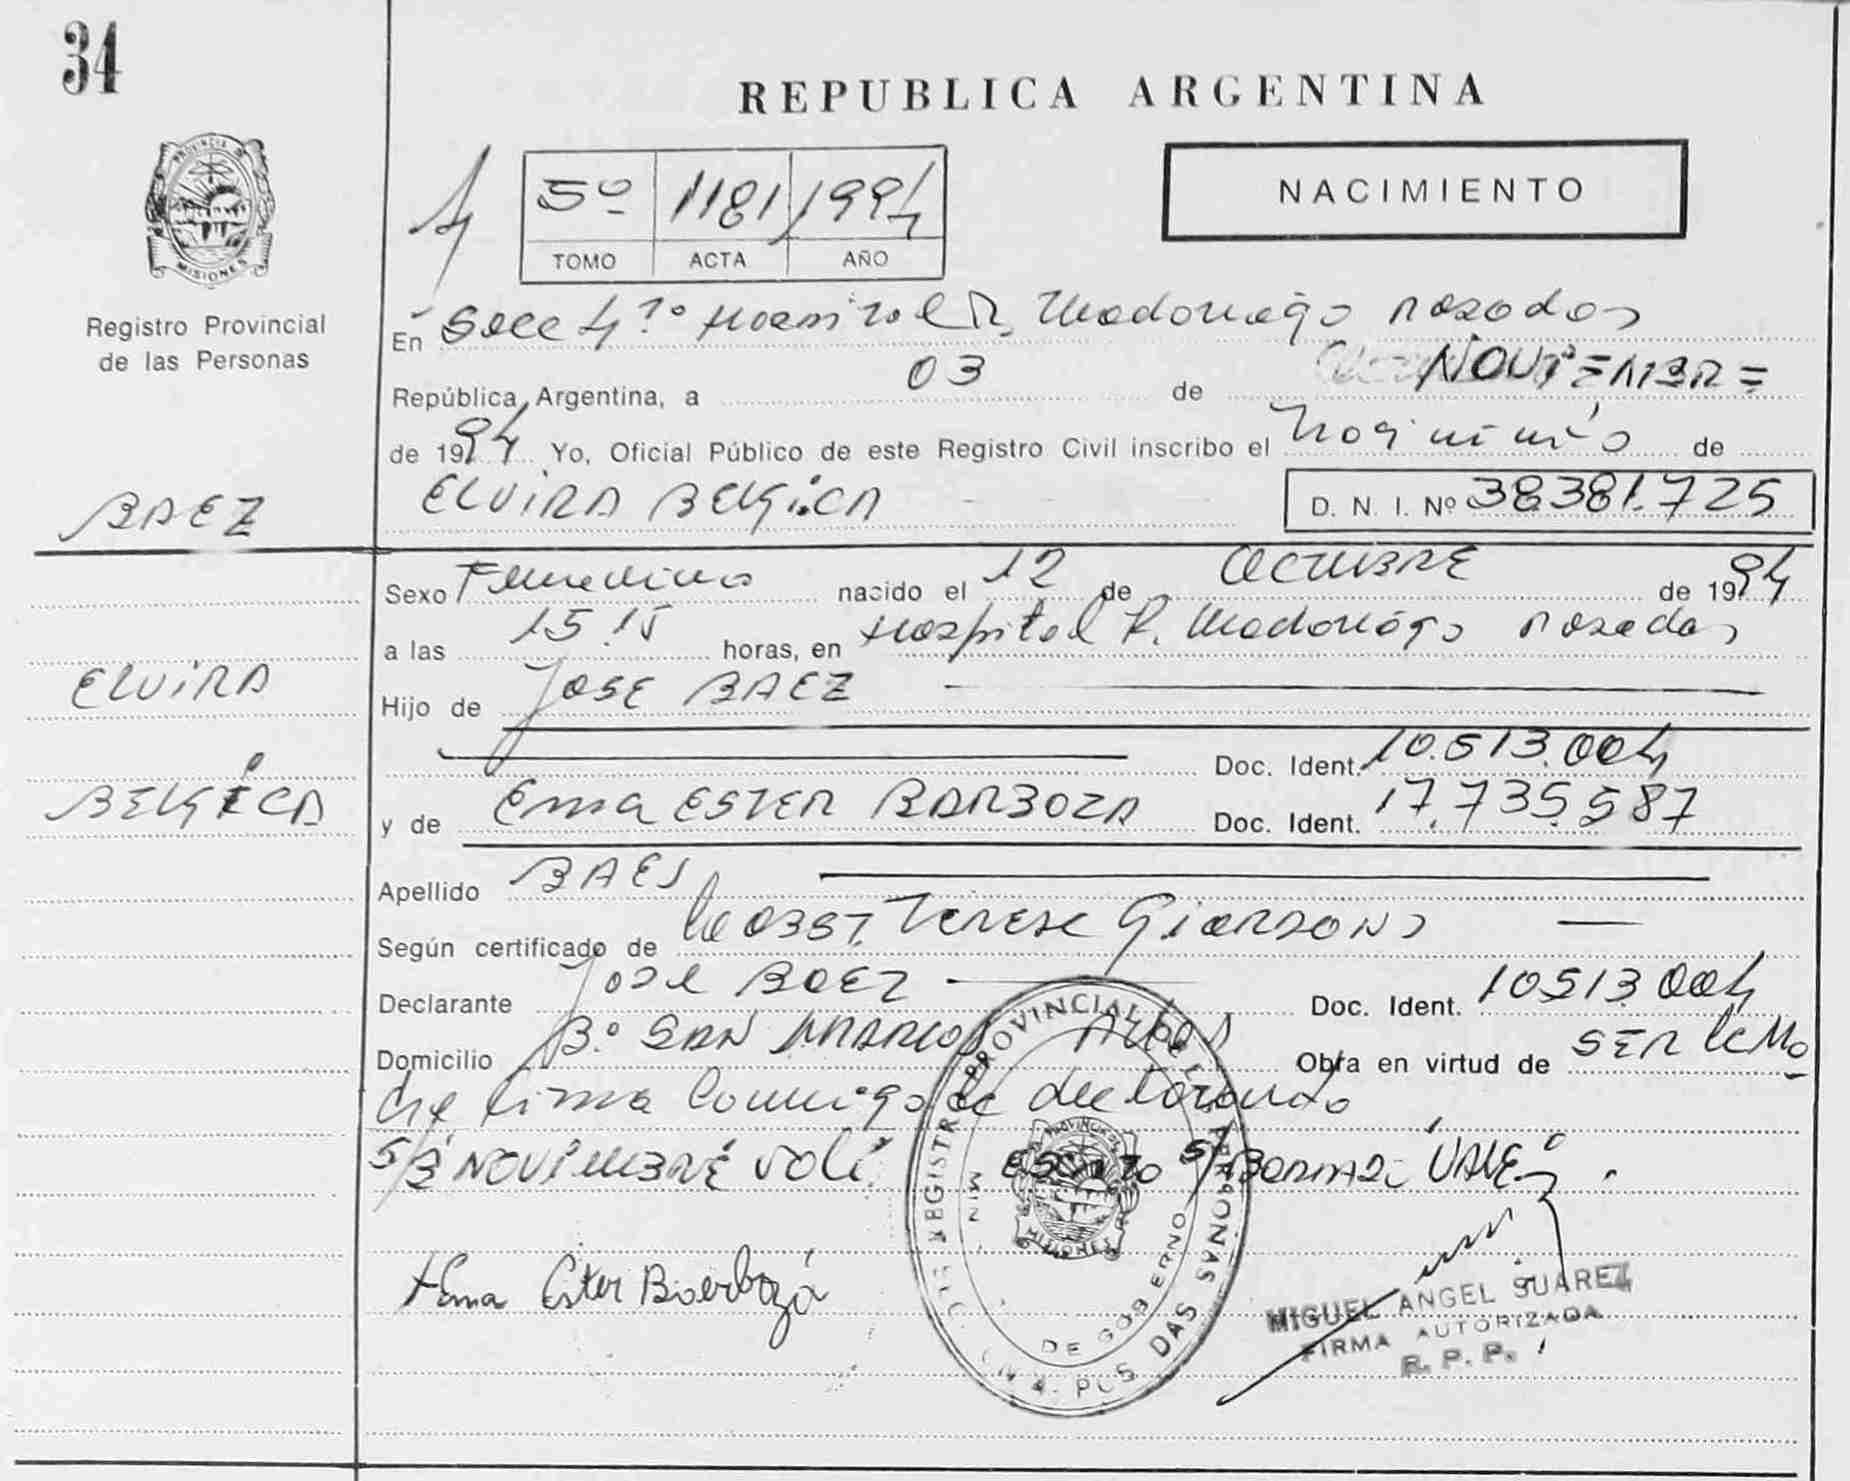 34
REPUBLICA ARGENTINA
PROVINCIA DE
MISIONES
Registro Provincial
de las Personas
5º 1181 1994
TOMO ACTA AÑO
NACIMIENTO
En Secc 4ª Hospital R. Madariaga Posadas
República Argentina, a 03 de NOVIEMBRE
de 1994 Yo, Oficial Público de este Registro Civil inscribo el de
BAEZ
ELVIRA BELGICA D. N. I. Nº 38381.725
Sexo Femenino nacido el 12 de OCTUBRE de 1994
a las 15.15 horas, en Hospital R. Madariaga Posadas
ELVIRA
Hijo de JOSE BAEZ
Doc. Ident. 10.513.004
BELGICA
y de Ema ESTER BARBOZA Doc. Ident. 17.735.587
Apellido BAES
Según certificado de OBST. Terese
Declarante Jose BAEZ Doc. Ident. 10513.004
Domicilio Bº SAN MARCOS Obra en virtud de SER
firma conmigo
NOVIEMBRE VALE
Ema Ester Barboza
REGISTRO PROVINCIAL DE LAS PERSONAS
MIN. DE GOBIERNO
POSADAS
MISIONES
MIGUEL ANGEL SUAREZ
FIRMA AUTORIZADA
R. P. P.